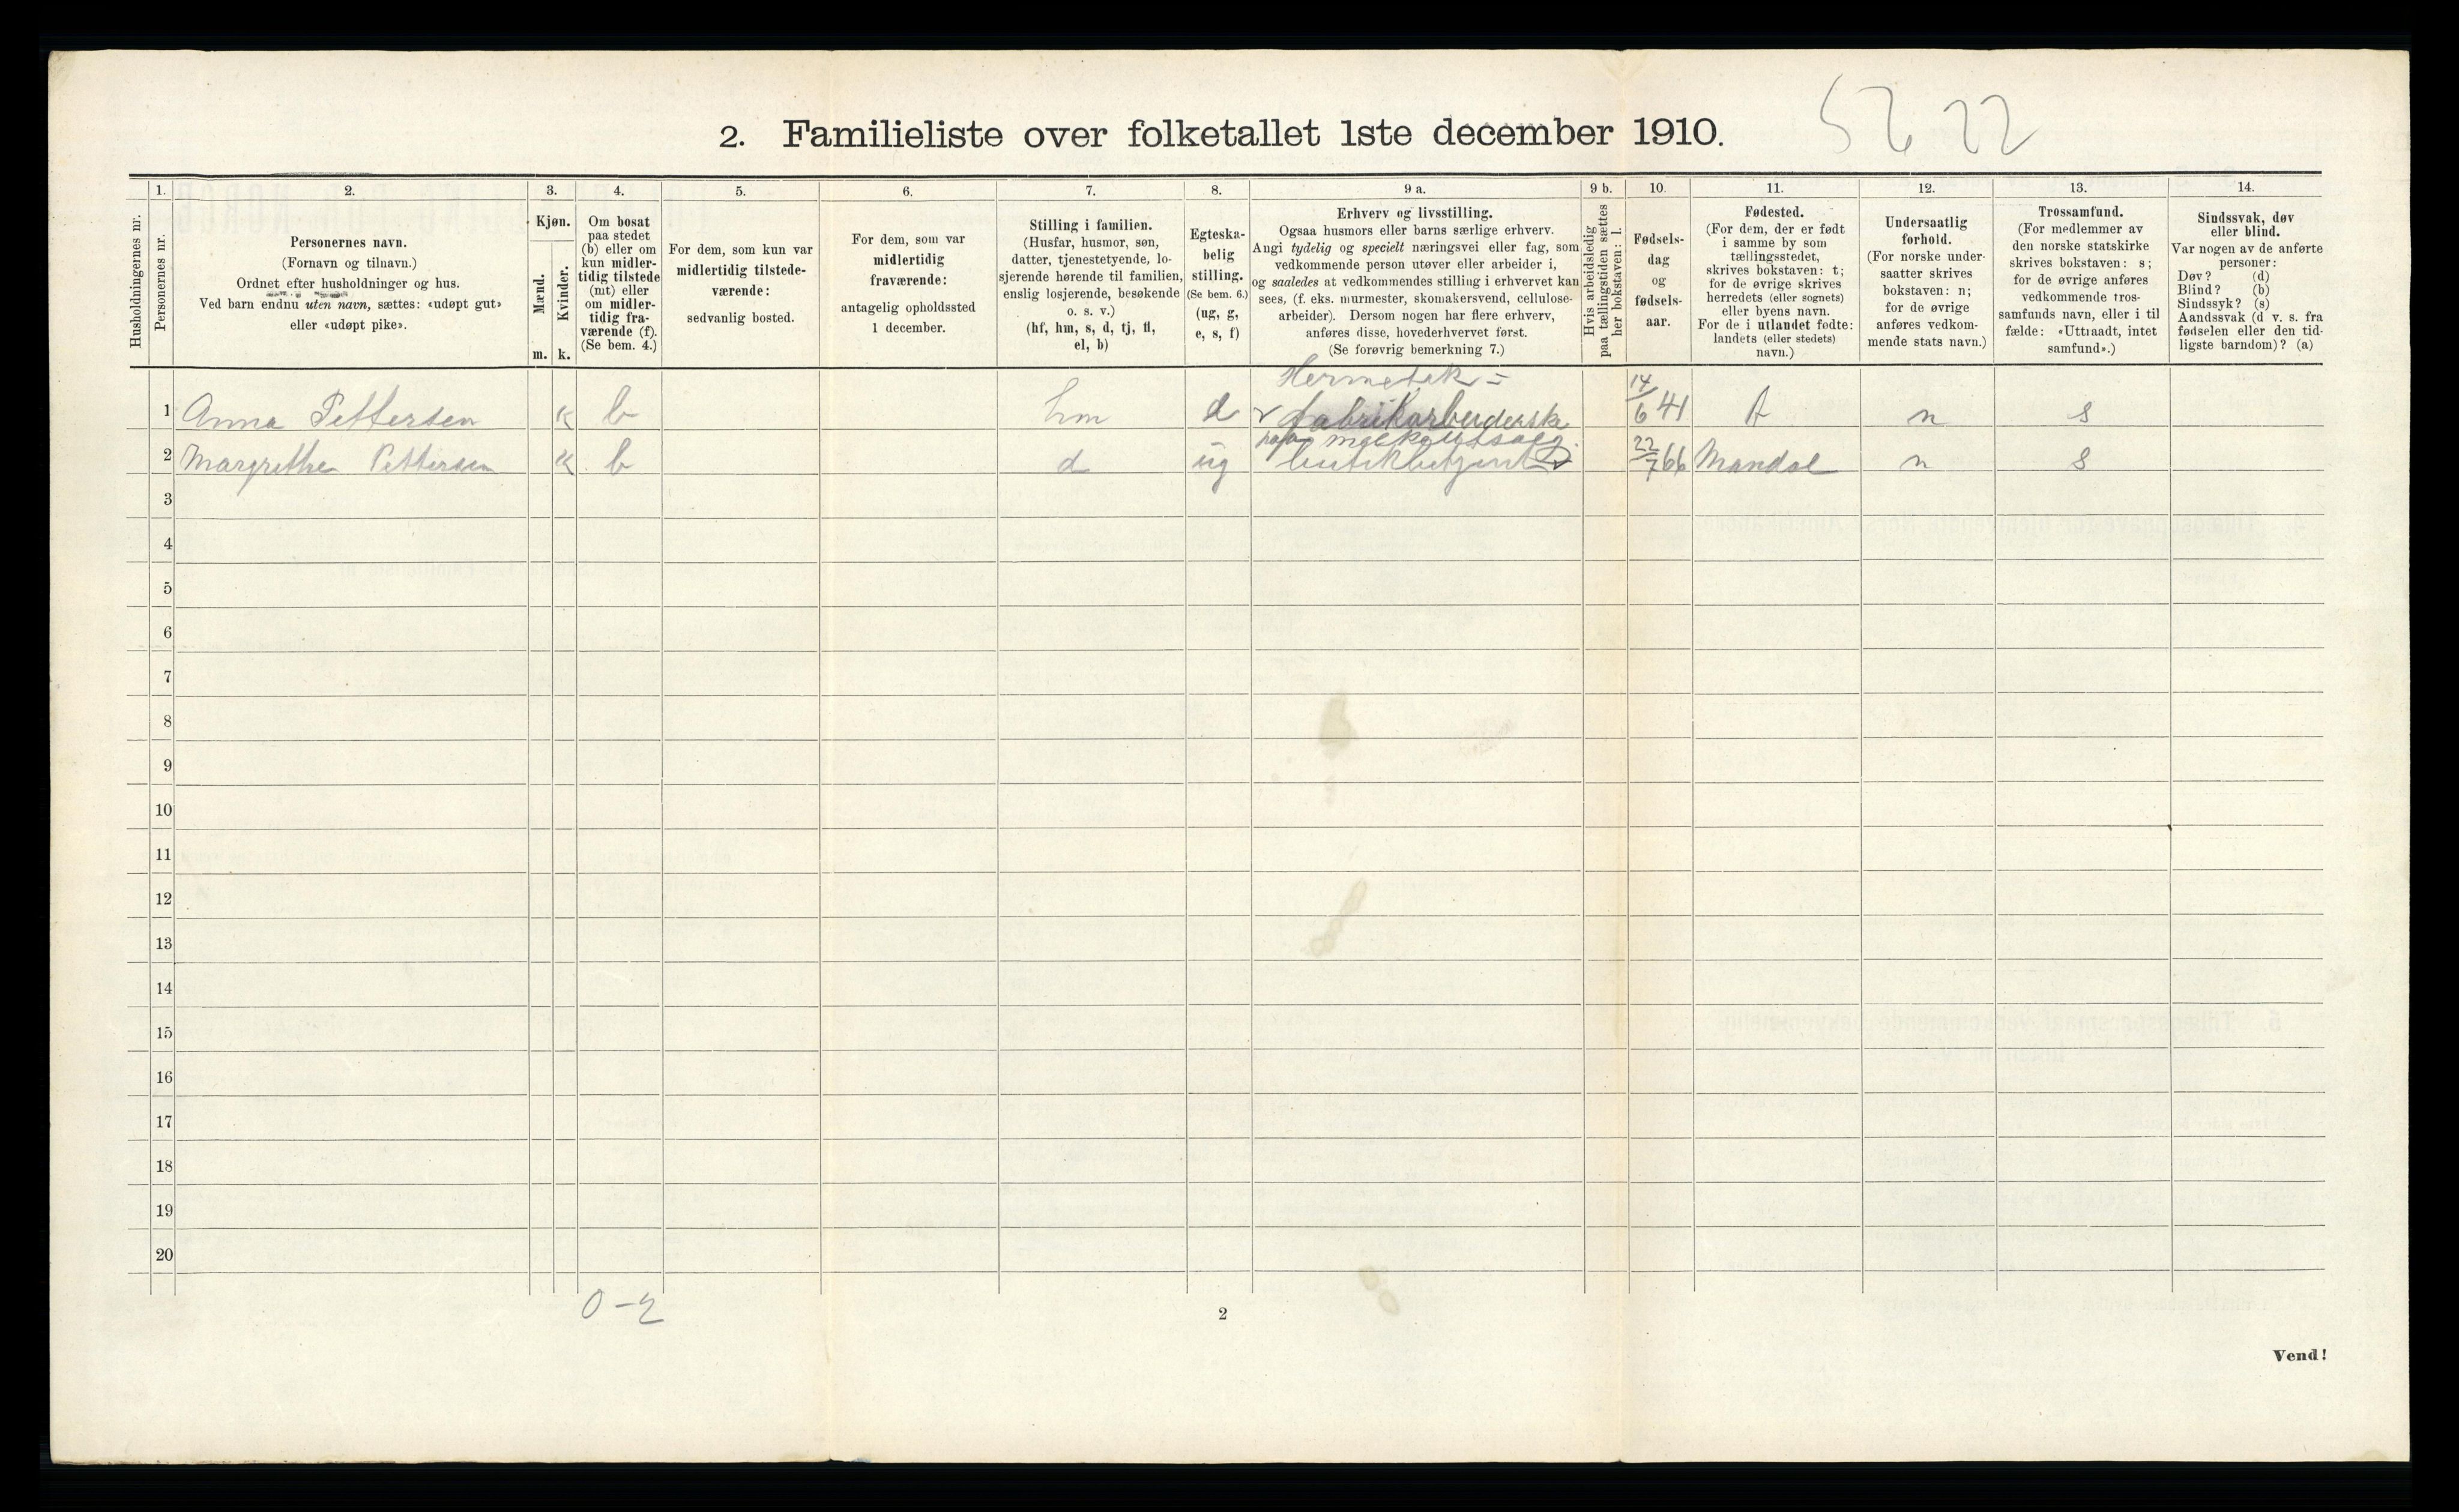 52 22
2. Familieliste over folketallet 1ste december 1910.
1. 2. 3. 4. 5. 6. 7. 8. 9 a. 9 b. 10. 11. 12. 13. 14.
Husholdningernes nr.
Personernes nr.
Personernes navn.
(Fornavn og tilnavn.)
Ordnet efter husholdninger og hus.
Ved barn endnu uten navn, sættes: «udøpt gut»
eller «udøpt pike».
Kjøn.
Mænd.
Kvinder.
m. k.
Om bosat
paa stedet
(b) eller om
kun midler-
tidig tilstede
(mt) eller
om midler-
tidig fra-
værende (f).
(Se bem. 4.)
For dem, som kun var
midlertidig tilstede-
værende:
sedvanlig bosted.
For dem, som var
midlertidig
fraværende:
antagelig opholdssted
1 december.
Stilling i familien.
(Husfar, husmor, søn,
datter, tjenestetyende, lo-
sjerende hørende til familien,
enslig losjerende, besøkende
o. s. v.)
(hf, hm, s, d, tj, fl,
el, b)
Egteska-
belig
stilling.
(Se bem. 6.)
(ug, g,
e, s, f)
Erhverv og livsstilling.
Ogsaa husmors eller barns særlige erhverv.
Angi tydelig og specielt næringsvei eller fag, som
vedkommende person utøver eller arbeider i,
og saaledes at vedkommendes stilling i erhvervet kan
sees, (f. eks. murmester, skomakersvend, cellulose-
arbeider). Dersom nogen har flere erhverv,
anføres disse, hovederhvervet først.
(Se forøvrig bemerkning 7.)
Hvis arbeidsledig
paa tællingstiden sættes
her bokstaven: l.
Fødsels-
dag
og
fødsels-
aar.
Fødested.
(For dem, der er født
i samme by som
tællingsstedet,
skrives bokstaven: t;
for de øvrige skrives
herredets (eller sognets)
eller byens navn.
For de i utlandet fødte:
landets (eller stedets)
navn.)
Undersaatlig
forhold.
(For norske under-
saatter skrives
bokstaven: n;
for de øvrige
anføres vedkom-
mende stats navn.)
Trossamfund.
(For medlemmer av
den norske statskirke
skrives bokstaven: s;
for de øvrige anføres
vedkommende tros-
samfunds navn, eller i til
fælde: «Uttraadt, intet
samfund».)
Sindssvak, døv
eller blind.
Var nogen av de anførte
personer:
Døv? (d)
Blind? (b)
Sindssyk? (s)
Aandssvak (d v. s. fra
fødselen eller den tid-
ligste barndom)? (a)
Hermetik =
1 Anna Pettersen k b hm d fabrikarbeiderske 14/6 41 t n s
melkeutsalg
2 Margrethe Pettersen k b d ug butikbetjent 22/7 66 Mandal n s
3
4
5
6
7
8
9
10
11
12
13
14
15
16
17
18
19
20
0-2
2
Vend!